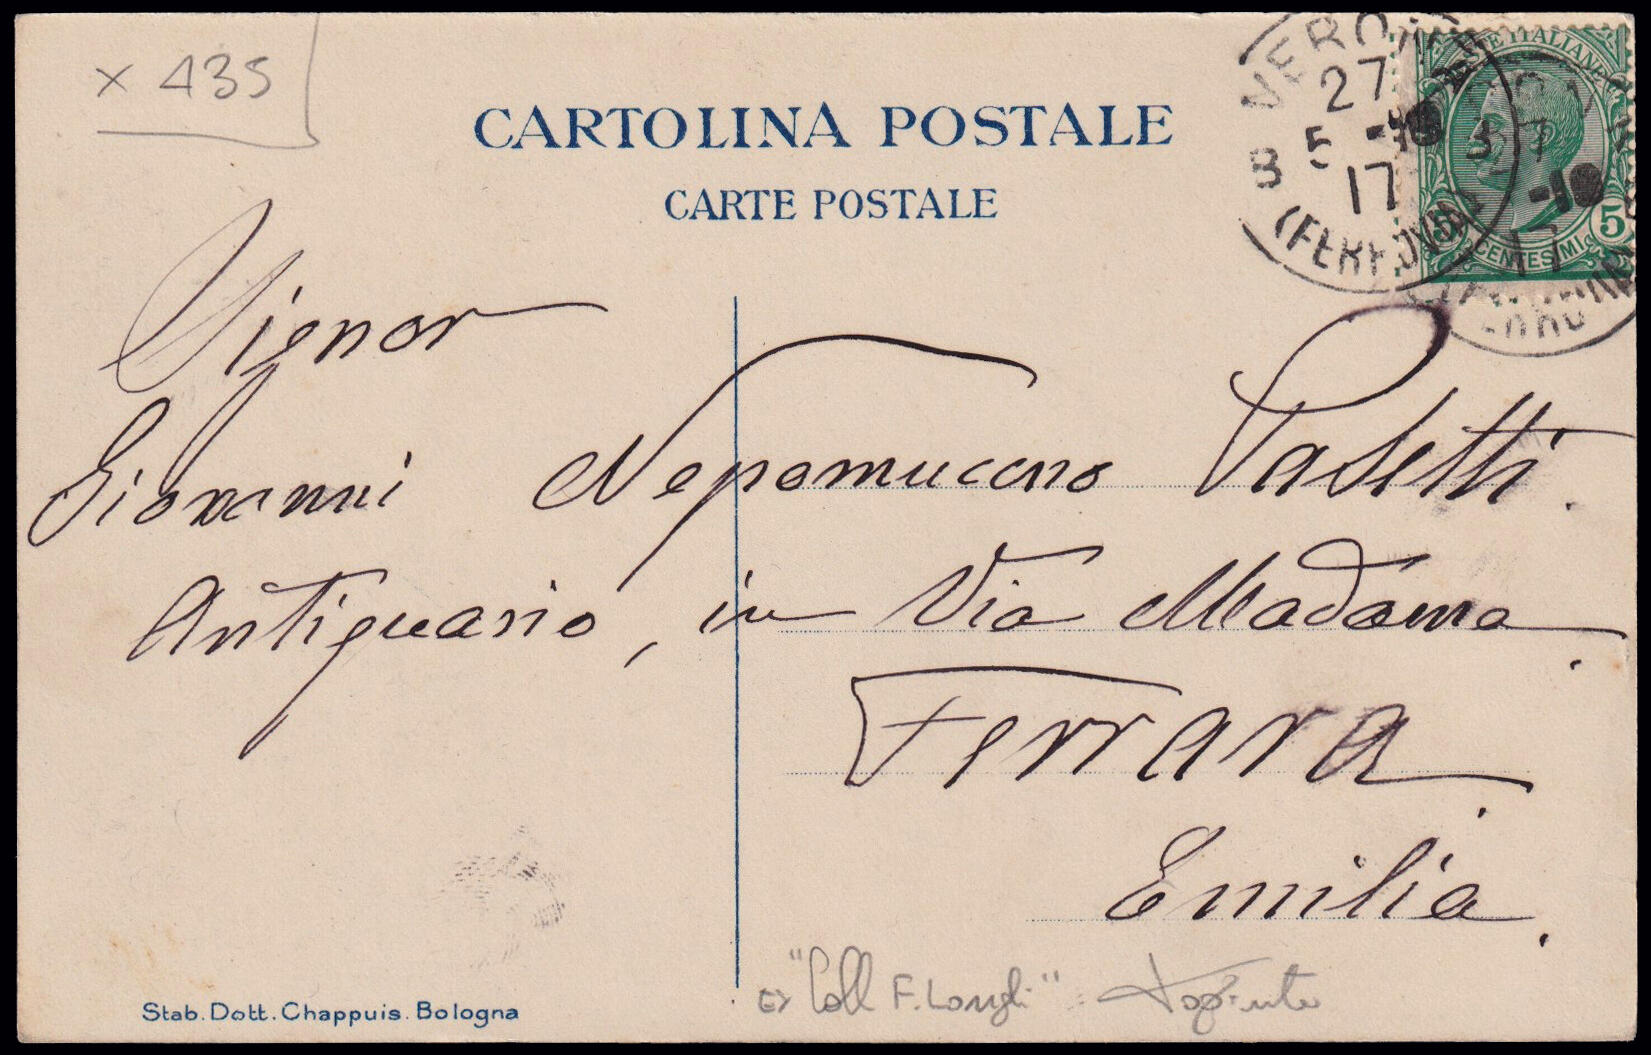 x 435
CARTOLINA POSTALE
CARTE POSTALE
VERONA
27
5 -10
17
B (FERROVIA)
POSTE ITALIANE
5 CENTESIMI 5
-10
17
Signor
Giovanni Nepomuceno Pasetti.
Antiquario, in Via Madama.
Ferrara.
Emilia.
Stab. Dott. Chappuis. Bologna
ex "Coll F. Longhi"